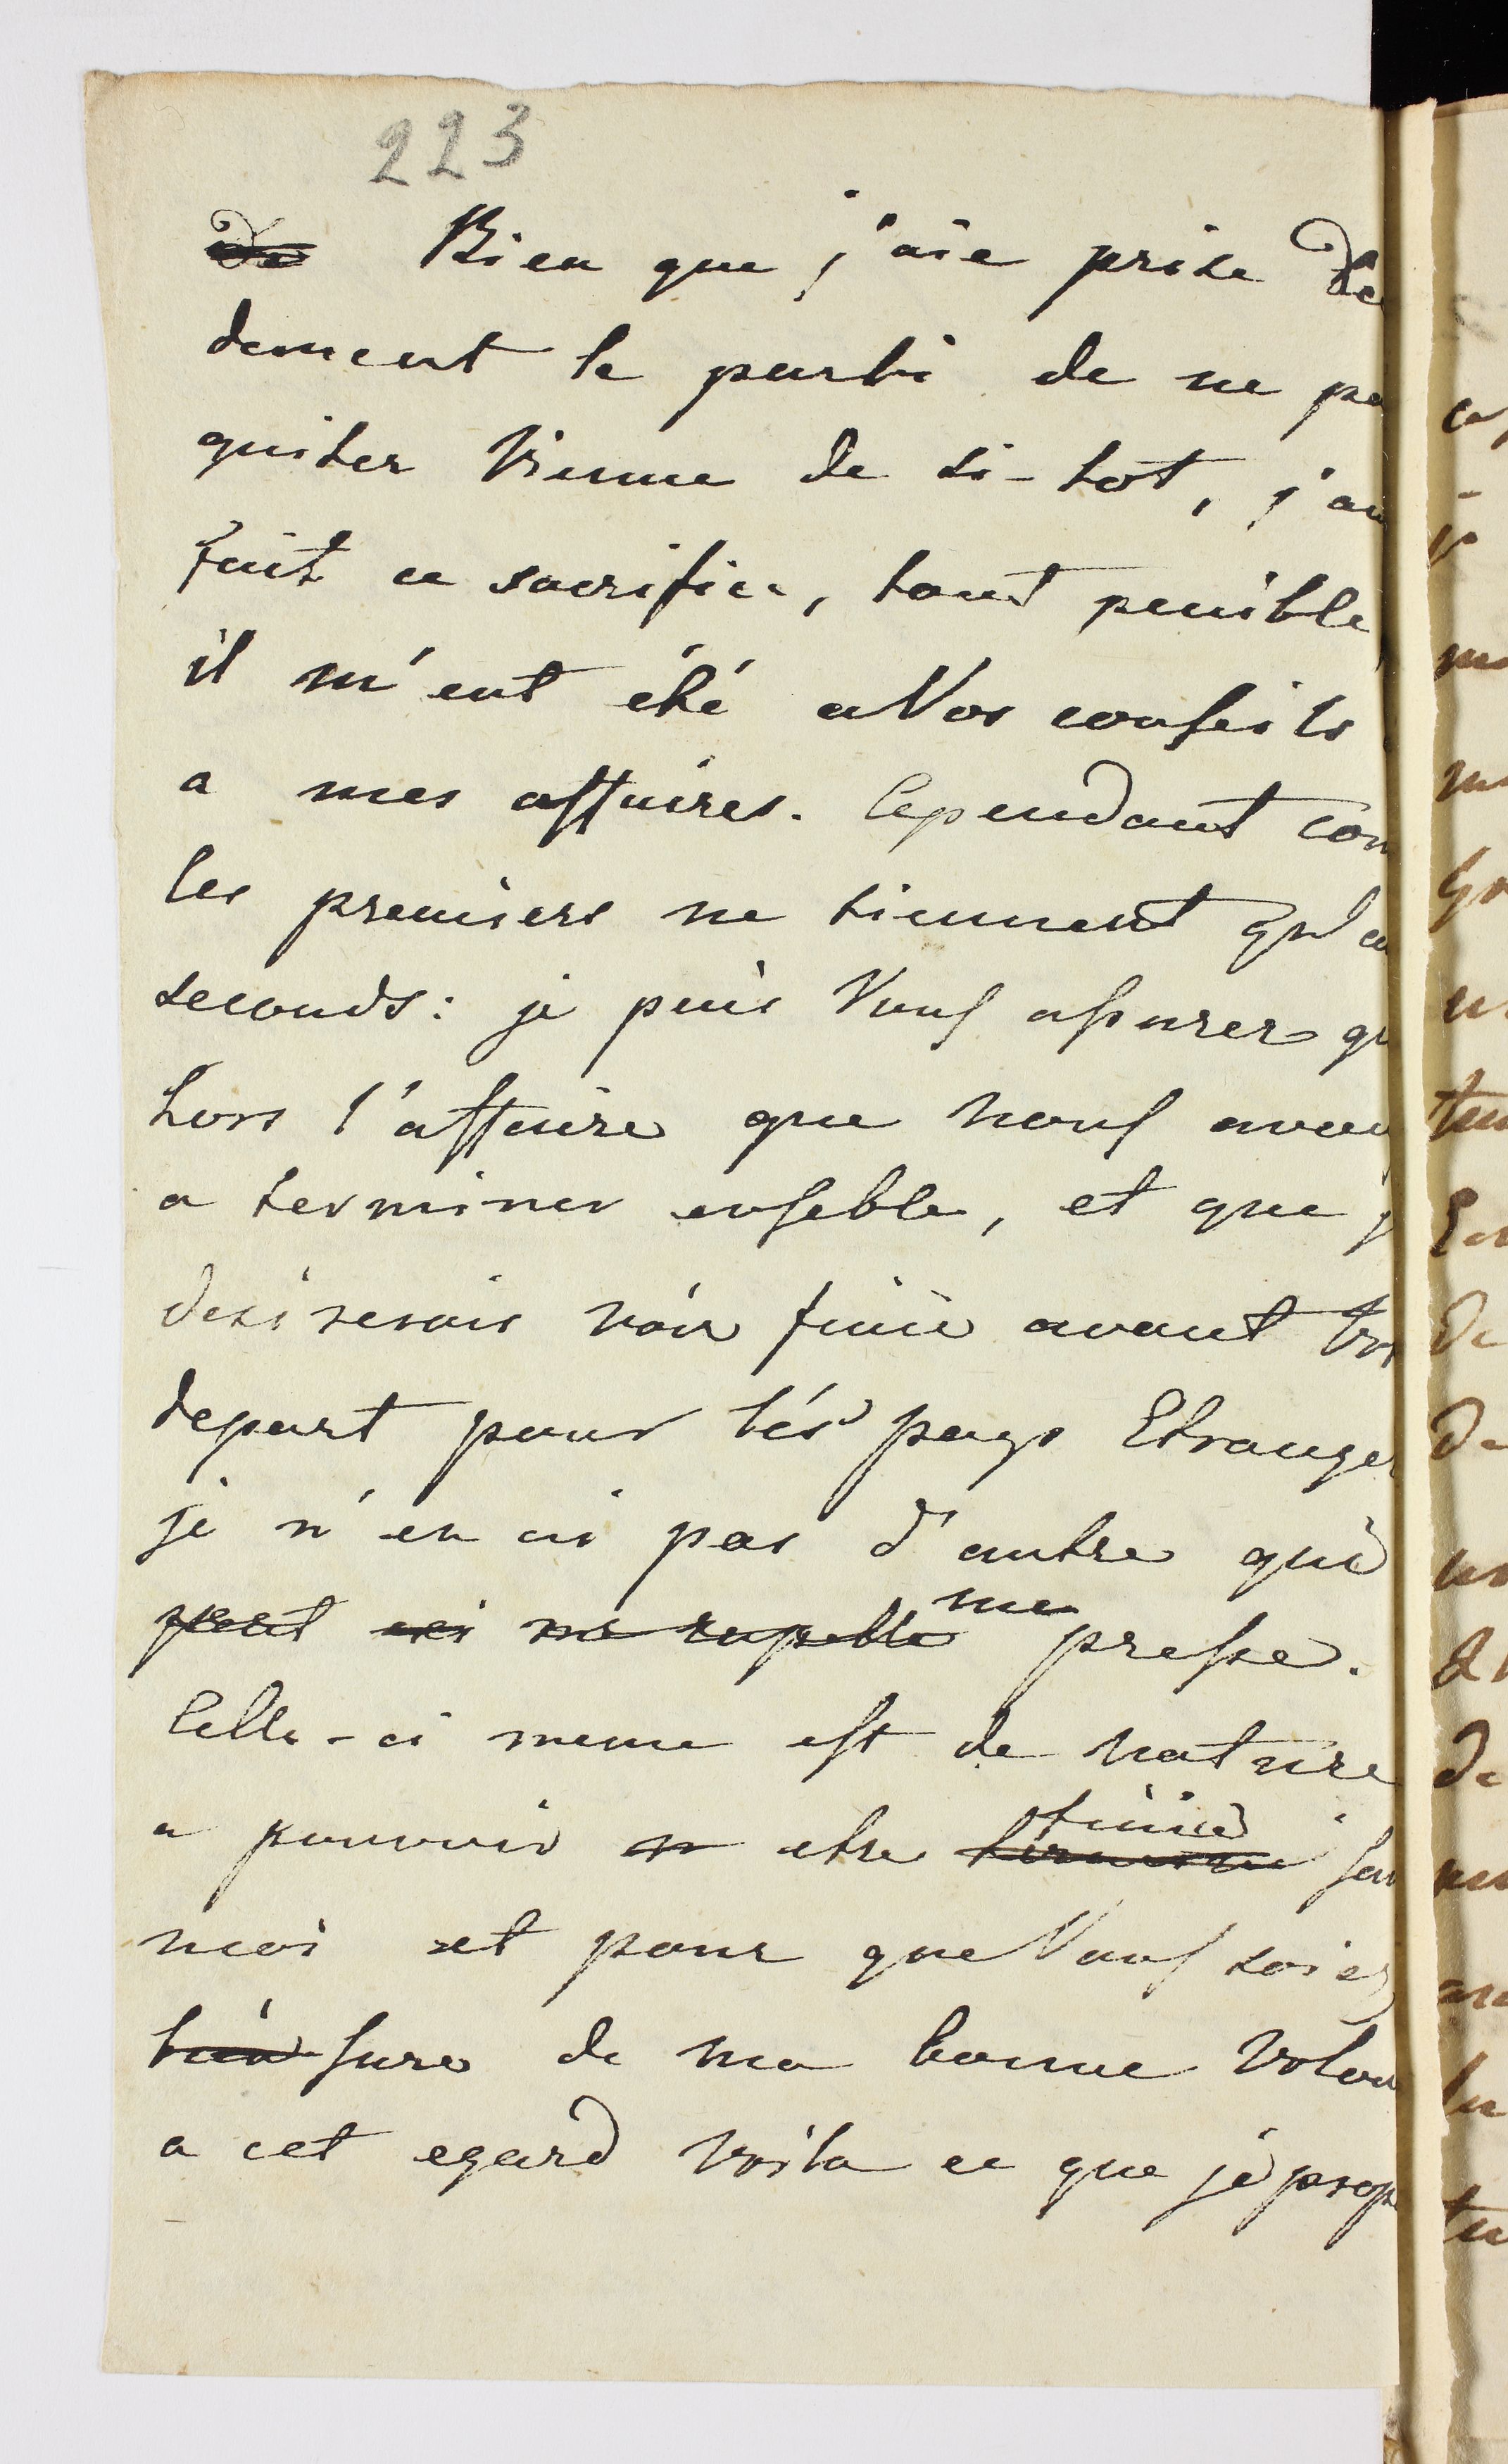 223
De Bien que j'aie prise De
dement le parti de ne pa
quiter Vienne de si-tot, j'au
fait ce sacrifice, tout penible
il m'eut été a Vos conseils
a mes affaires. Cependant com
les premiers ne tiennent qu'au
seconds: je puis Vous assurer qu
hors l'affaire que nous avon
a terminer enseble, et que j
desirerais voir finie avant Vo
depart pour lés pays Etranger
je n'en ai pas d'autre qui
peut ici me rapelle me presse.
Celle-ci meme est de nature
a pouvoir etre finie san
moi et pour que Vous soiez
bien sure de ma bonne Volon
a cet egard Voila ce que je prop